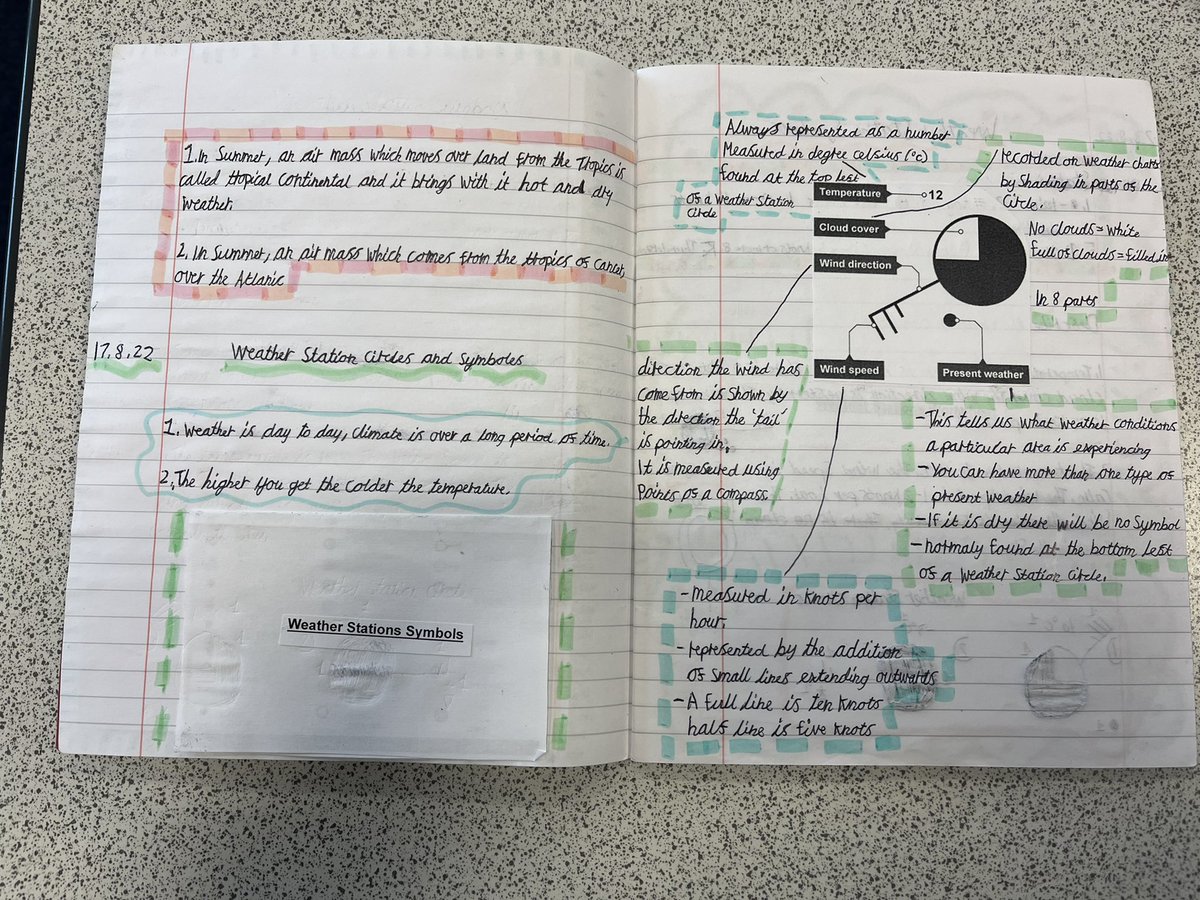 1. In Summer, an air mass which moves over land from the Tropics is
called tropical continental and it brings with it hot and dry
weather.
2. In Summer, an air mass which comes from the tropics of Cancer
over the Atlanic
17.8.22
Weather Station Circles and Symboles
1. Weather is day to day, Climate is over a long period of time.
2. The higher you get the colder the temperature.
Weather Stations Symbols
Always represented as a number
Measured in degree celsius (°c)
found at the top left
of a weather Station
Circle
recorded on weather charts
by Shading in parts of the
Circle.
No clouds = white
full of clouds = filled in
In 8 parts
Temperature
12
Cloud cover
Wind direction
Wind speed
Present weather
direction the wind has
come from is shown by
the direction the 'tail'
is pointing in.
It is measured using
Points of a compass.
- This tells us what weather conditions
a particular area is experiencing
- You can have more than one type of
present weather
- If it is dry there will be no Symbol
- normaly found at the bottom left
of a weather station circle.
- measured in knots per
hour.
- represented by the addition
of small lines extending outwards
- A full line is ten knots
half line is five knots